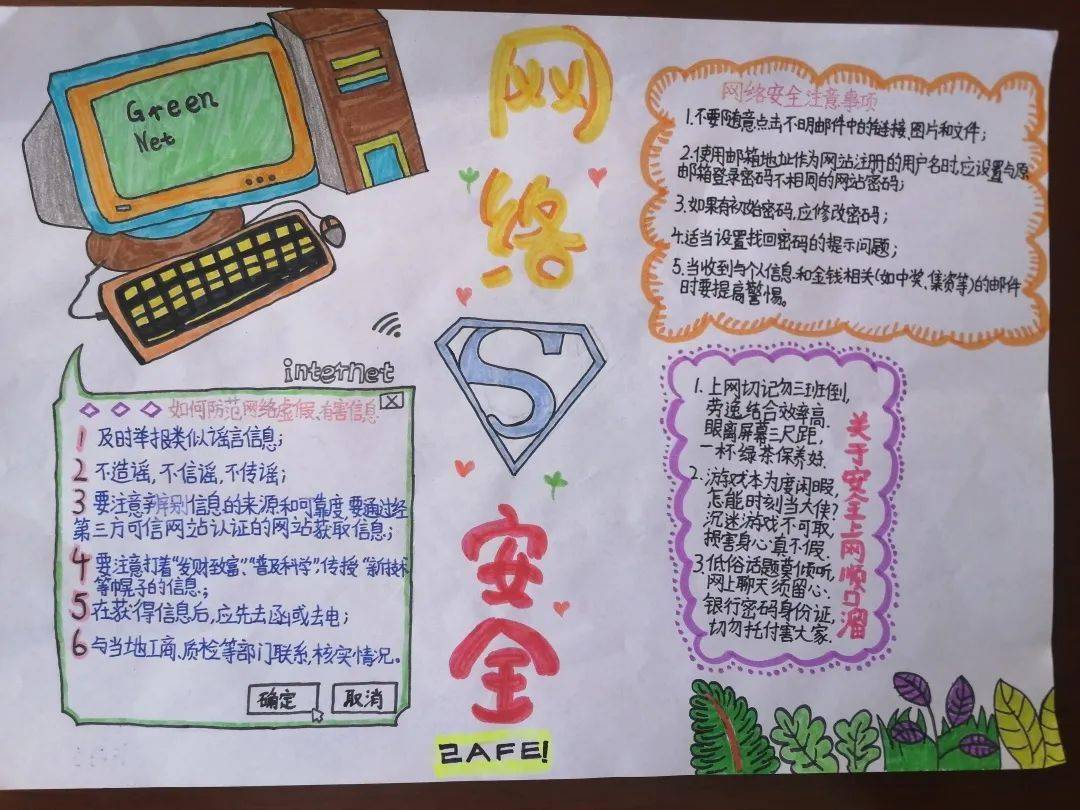 Green
Net
网
络
S
安
全
ZAFE!
网络安全注意事项
1.不要随意点击不明邮件中的链接、图片和文件；
2.使用邮箱地址作为网站注册的用户名时,应设置与原
邮箱登录密码不相同的网站密码；
3.如果有初始密码,应修改密码；
4.适当设置找回密码的提示问题；
5.当收到与个人信息和金钱相关(如中奖、集资等)的邮件
时要提高警惕。
interNet
如何防范网络虚假、有害信息
1 及时举报类似谣言信息；
2 不造谣,不信谣,不传谣；
3 要注意辨别信息的来源和可靠度,要通过经
第三方可信网站认证的网站获取信息；
4 要注意打着“发财致富”、“普及科学”,传授“新技术”
等幌子的信息；
5 在获得信息后,应先去函或去电；
6 与当地工商、质检等部门联系,核实情况。
确定
取消
关于安全上网顺口溜
1.上网切记勿三班倒,
劳逸结合效率高.
眼离屏幕三尺距,
一杯绿茶保养好.
2.游戏本为度闲暇,
怎能时刻当大侠?
沉迷游戏不可取,
损害身心真不假.
3.低俗话题莫倾听,
网上聊天须留心.
银行密码身份证,
切勿托付害大家.